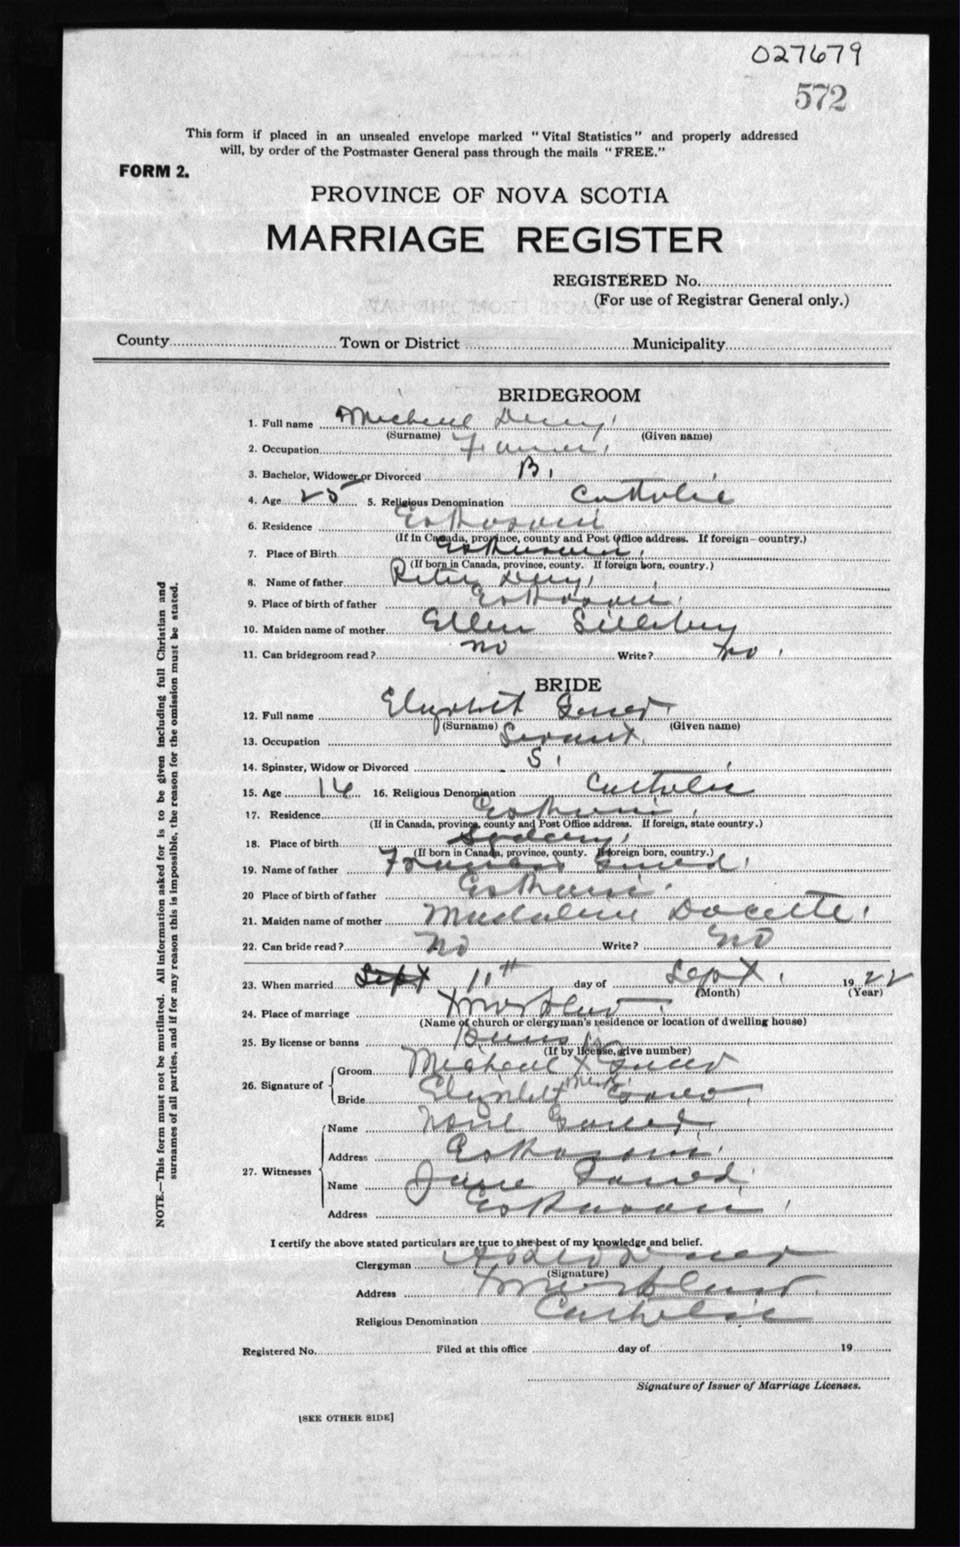 027679
572
This form if placed in an unsealed envelope marked "Vital Statistics" and properly addressed
will, by order of the Postmaster General pass through the mails "FREE."
FORM 2.
PROVINCE OF NOVA SCOTIA
MARRIAGE REGISTER
REGISTERED No.
(For use of Registrar General only.)
County Town or District Municipality
BRIDEGROOM
1. Full name Micheal Deny
(Surname) (Given name)
2. Occupation Farmer
3. Bachelor, Widower or Divorced B
4. Age 25 5. Religious Denomination Catholic
6. Residence Eskasoni
(If in Canada, province, county and Post Office address. If foreign—country.)
7. Place of Birth Eskasoni
(If born in Canada, province, county. If foreign born, country.)
8. Name of father Peter Deny
9. Place of birth of father Eskasoni
10. Maiden name of mother Ellen
11. Can bridegroom read? no Write? no
BRIDE
12. Full name Elizabeth
(Surname) (Given name)
13. Occupation Servant
14. Spinster, Widow or Divorced S
15. Age 16. Religious Denomination Catholic
17. Residence Eskasoni
(If in Canada, province, county and Post Office address. If foreign, state country.)
18. Place of birth Sydney
(If born in Canada, province, county. If foreign born, country.)
19. Name of father
20 Place of birth of father Eskasoni
21. Maiden name of mother Madaline Docette
22. Can bride read? No Write? no
23. When married Sept 11th day of Sept 1922
(Month) (Year)
24. Place of marriage
(Name of church or clergyman's residence or location of dwelling house)
25. By license or banns Banns
(If by license, give number)
26. Signature of
Groom Micheal X
Bride Elizabeth
27. Witnesses
Name Noel
Address Eskasoni
Name Jane
Address Eskasoni
I certify the above stated particulars are true to the best of my knowledge and belief.
Clergyman
(Signature)
Address
Religious Denomination Catholic
Registered No. Filed at this office day of 19
Signature of Issuer of Marriage Licenses.
[SEE OTHER SIDE]
NOTE.—This form must not be mutilated. All information asked for is to be given including full Christian and
surnames of all parties, and if for any reason this is impossible, the reason for the omission must be stated.